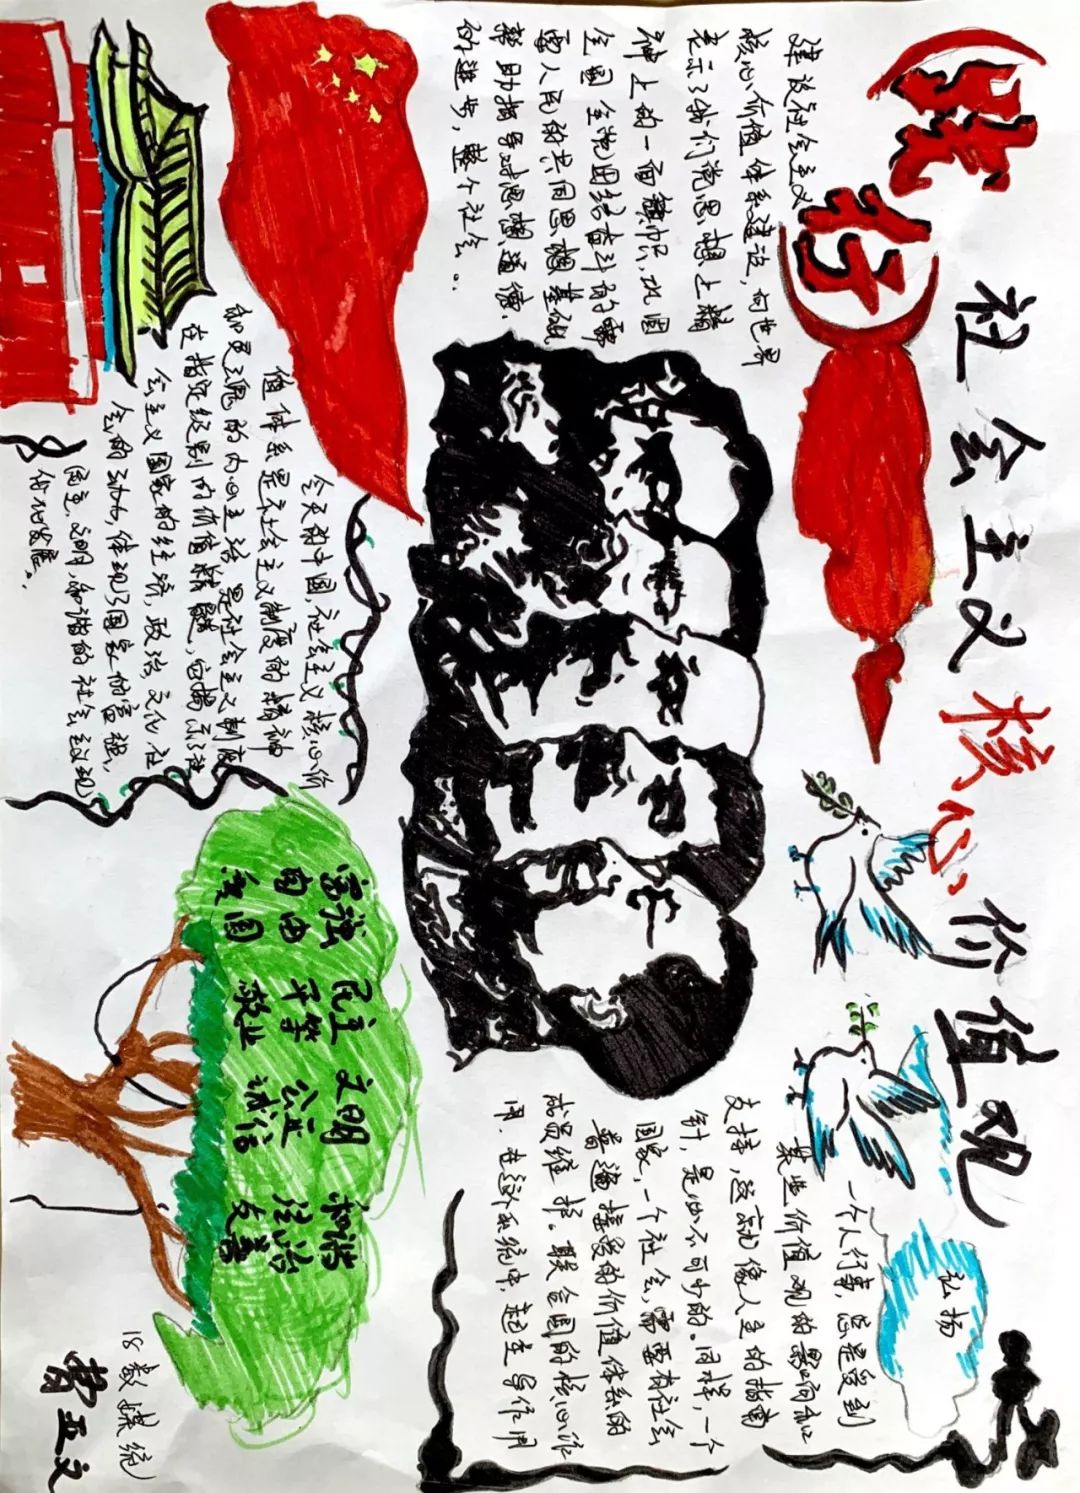 践行
社会主义核心价值观
弘扬
建设社会主义
核心价值体系建设,向世界
表示了我们党思想上精
神上的一面旗帜,巩固
全国全党团结奋斗的需
要人民的共同思想基础
帮助指导对思想道德.
的进步,整个社会...
一个人行事,总是受到
某些价值观的影响和
支持,这就像人生的指南
针,是必不可少的.同样,一个
国家,一个社会,需要有社会
普遍接受的价值体系的
成员维护。联合国的核心
用.在这个系统中,起主导作用
今天的中国,社会主义核心价
值体系是社会主义制度的精神
的内心主 是社会主义制度
在指定级别的价值精髓,它揭示了社
会主义国家的经济,政治,文化,社
会的动力,体现了国家的富强、
民主、文明、和谐的社会主义现
代化发展。
富强 民主 文明 和谐
自由 平等 公正 法治
爱国 敬业 诚信 友善
18数媒